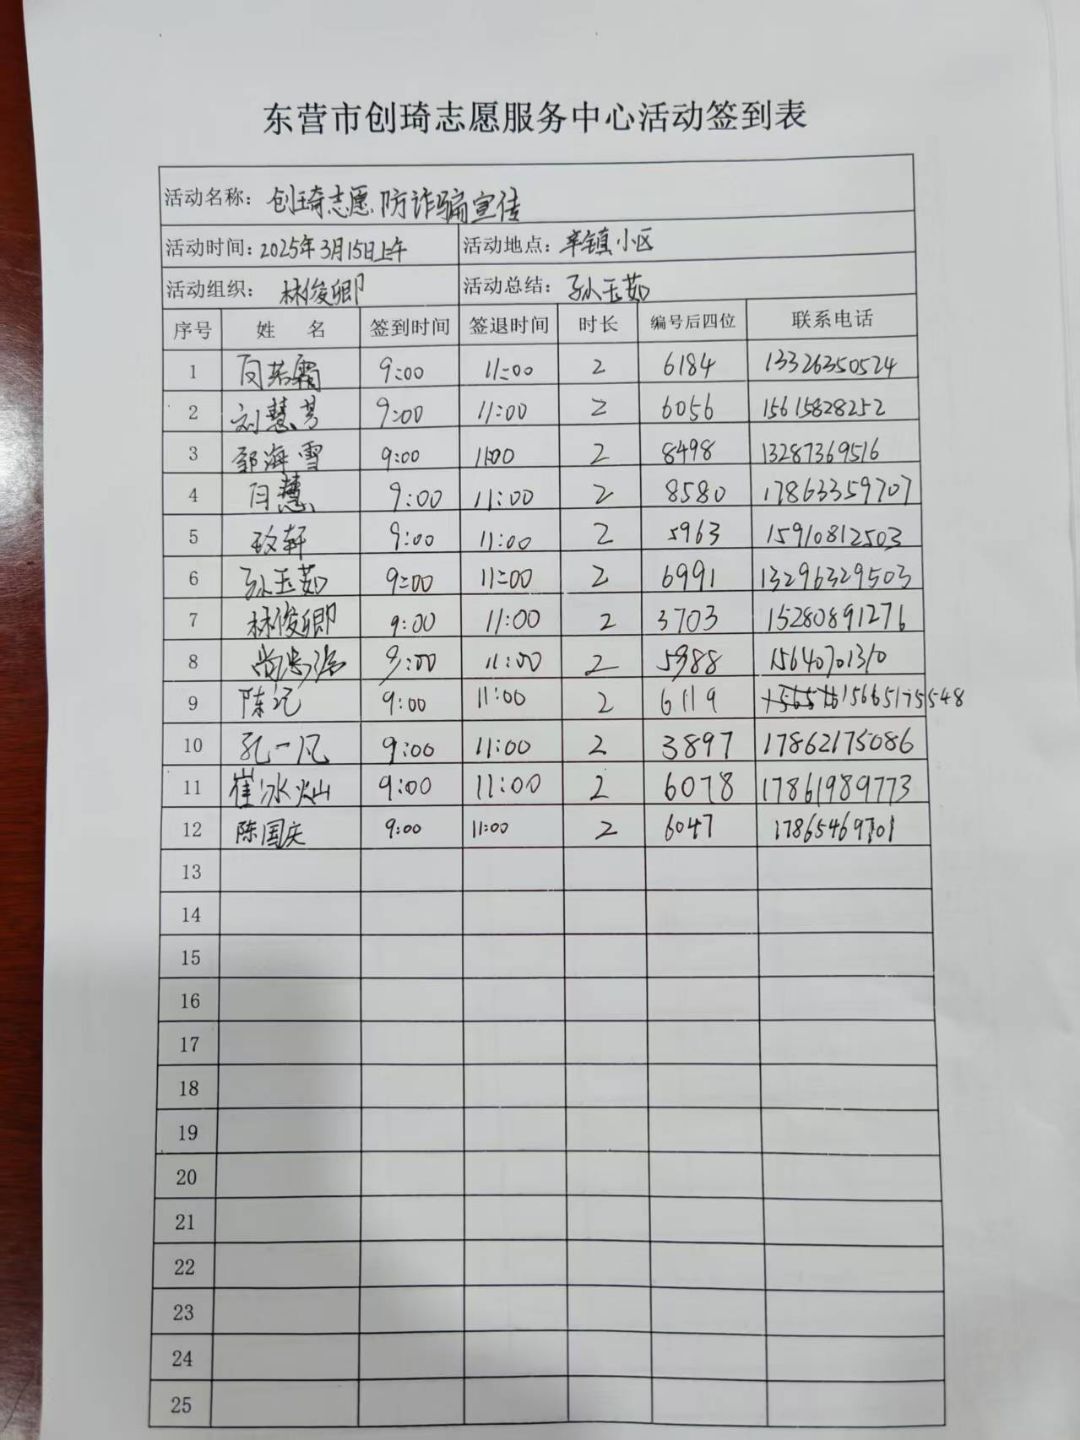 东营市创琦志愿服务中心活动签到表
活动名称：创琦志愿防诈骗宣传
活动时间：2025年3月15日上午 活动地点：辛镇小区
活动组织：林俊卿 活动总结：孙玉茹
序号 姓 名 签到时间 签退时间 时长 编号后四位 联系电话
1 闫若霜 9:00 11:00 2 6184 13326350524
2 刘慧芳 9:00 11:00 2 6056 15615828252
3 邹海雪 9:00 11:00 2 8498 13287369516
4 闫慧 9:00 11:00 2 8580 17863359707
5 轩 9:00 11:00 2 5963 15910812503
6 孙玉茹 9:00 11:00 2 6991 13296329503
7 林俊卿 9:00 11:00 2 3703 15280891276
8 尚 9:00 11:00 2 5988 15640701310
9 陈记 9:00 11:00 2 6119 15665175548
10 孔一凡 9:00 11:00 2 3897 17862175086
11 崔冰灿 9:00 11:00 2 6078 17861989773
12 陈国庆 9:00 11:00 2 6047 17865469701
13
14
15
16
17
18
19
20
21
22
23
24
25